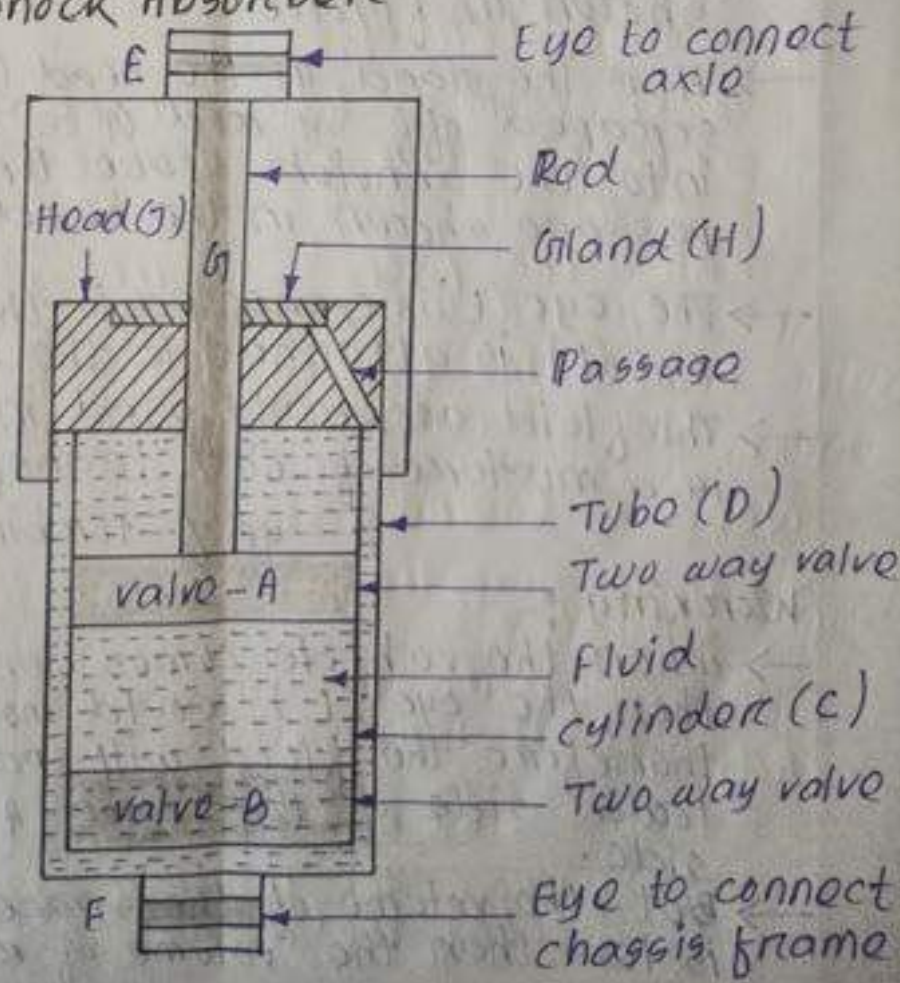 Shock Absorber
E
Eye to connect
axle
Rod
Head(J)
G
Gland (H)
Passage
Tube (D)
Two way valve
valve-A
Fluid
cylinder (C)
valve-B
Two way valve
F
Eye to connect
chassis frame